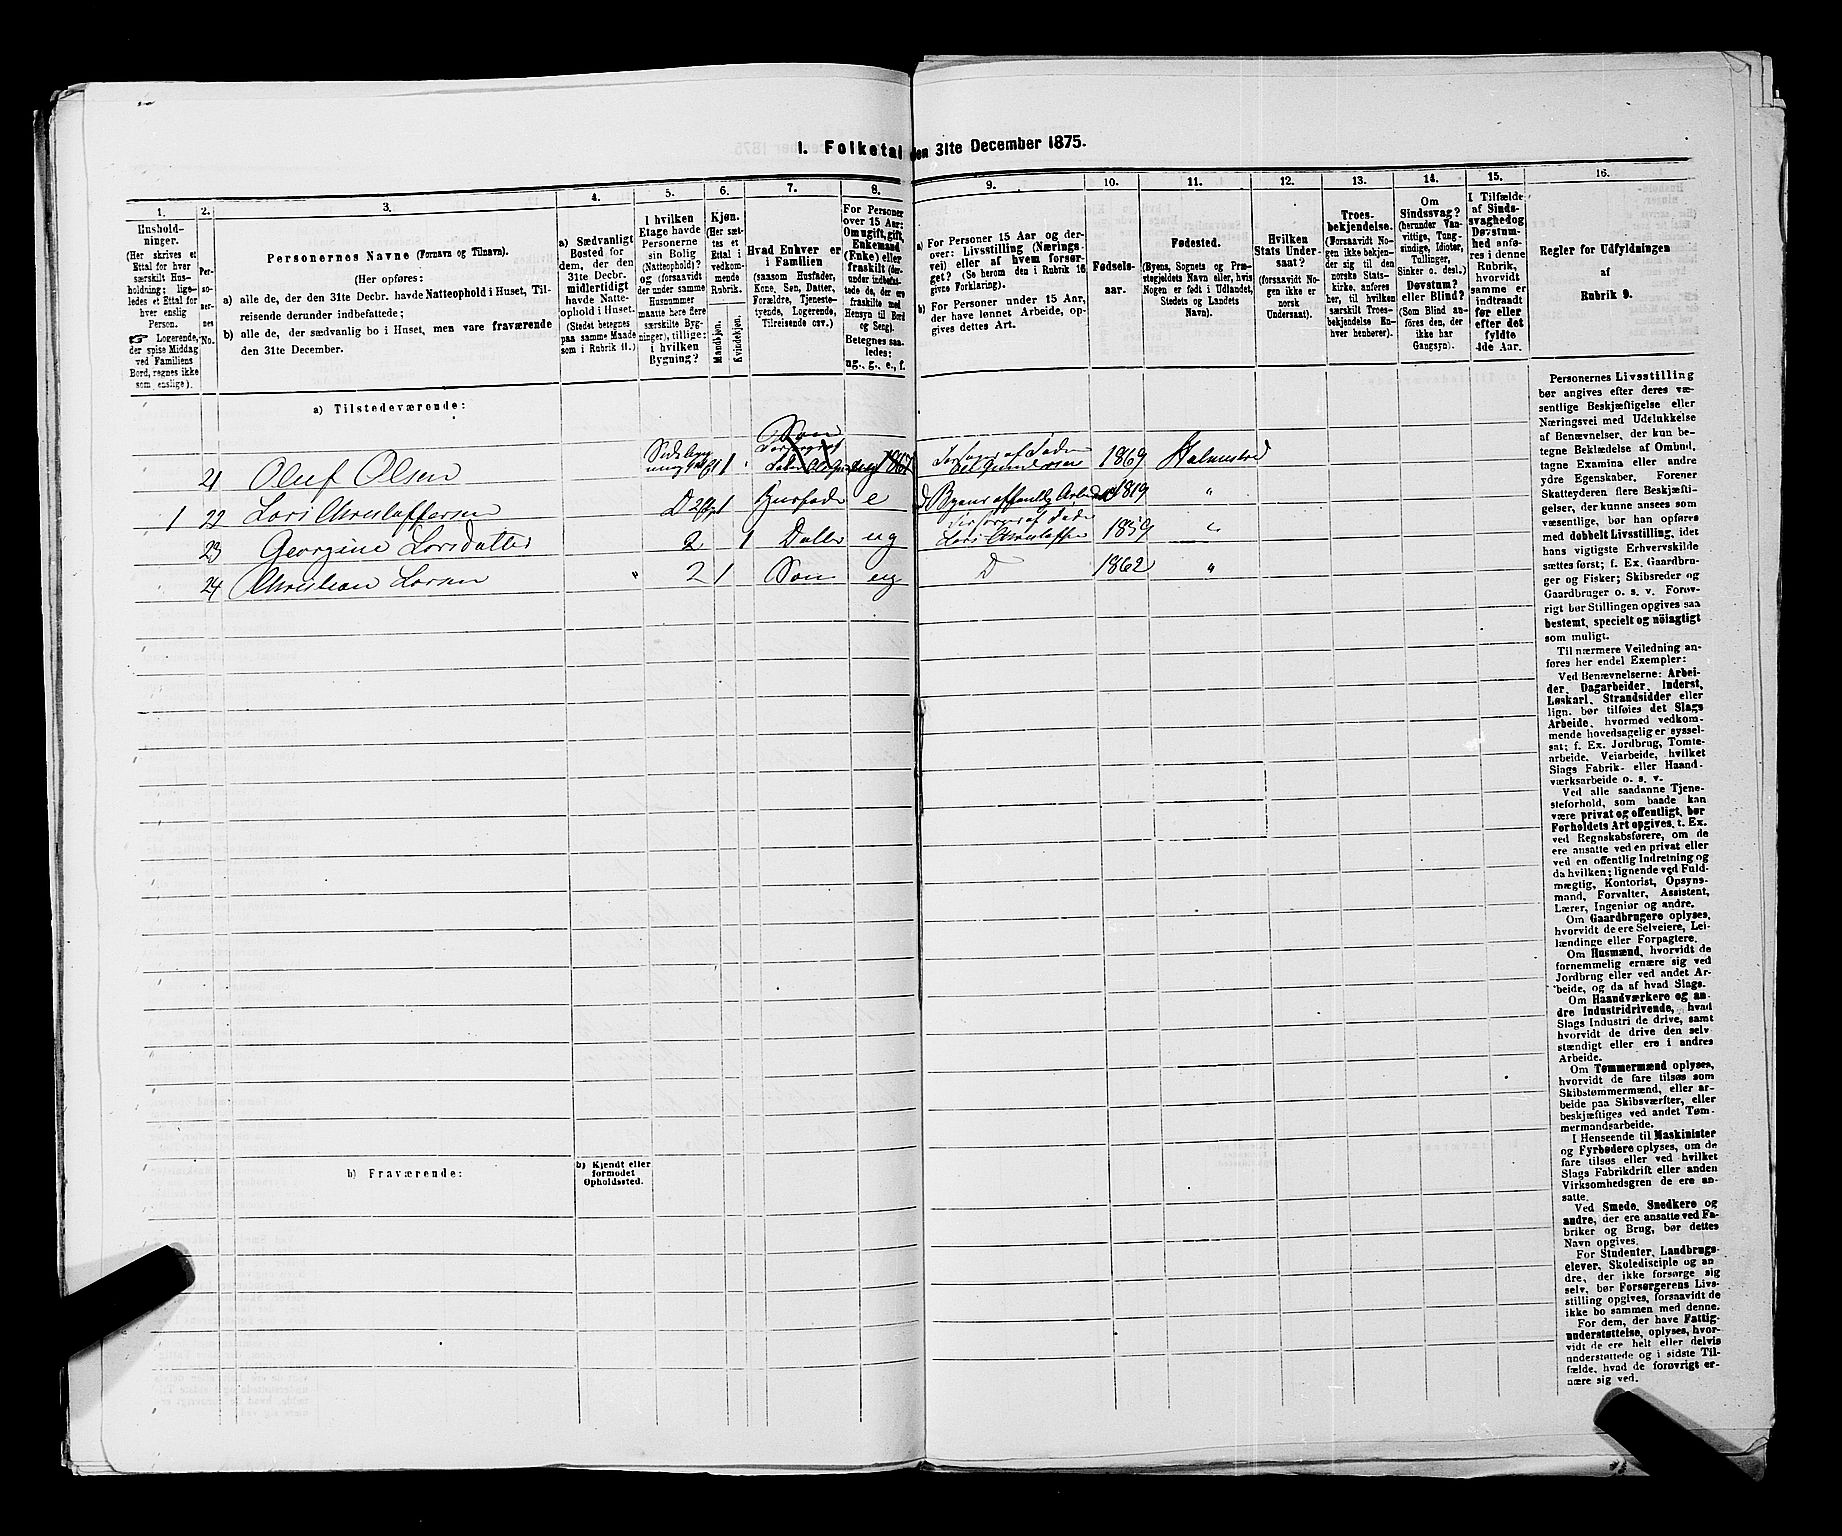 I. Folketal den 31te December 1875.
1.
2.
3.
4.
5.
6.
7.
8.
9.
10.
11.
12.
13.
14.
15.
16.
Hushold-
ninger.
(Her skrives et
Ettal for hver
særskilt Hus-
holdning; lige-
ledes et Ettal for
hver enslig
Person.
☞ Logerende,
der spise Middag
ved Familiens
Bord, regnes ikke
som enslige).
Per-
so-
ner-
nes
No.
Personernes Navne (Fornavn og Tilnavn).
(Her opføres:
a) alle de, der den 31te Decbr. havde Natteophold i Huset, Til-
reisende derunder indbefattede;
b) alle de, der sædvanlig bo i Huset, men vare fraværende
den 31te December.
a) Sædvanligt
Bosted for
dem, der den
31te Decbr.
midlertidigt
havde Natte-
ophold i Huset.
(Stedet betegnes
paa samme Maade
som i Rubrik 11.)
I hvilken
Etage havde
Personerne
sin Bolig
(Natteophold)?
og (forsaavidt
der under samme
Husnummer
maatte høre flere
særskilte Byg-
ninger), tillige:
i hvilken
Bygning?
Kjøn.
(Her sæt-
tes et
Ettal i
vedkom-
mende
Rubrik.
Mandkjøn.
Kvindekjøn.
Hvad Enhver er
i Familien
(saasom Husfader,
Kone, Søn, Datter,
Forældre, Tjeneste-
tyende, Logerende,
Tilreisende osv.)
For Personer
over 15 Aar:
Om ugift, gift,
Enkemand
(Enke) eller
fraskilt (der-
under indbefat-
tede de, der ere
fraskilte med
Hensyn til Bord
og Seng).
Betegnes saa-
ledes:
ug., g., e., f.
a) For Personer 15 Aar og der-
over: Livsstilling (Nærings-
vei) eller af hvem forsør-
get? (Se herom den i Rubrik 16
givne Forklaring).
b) For Personer under 15 Aar,
der have lønnet Arbeide, op-
gives dettes Art.
Fødsels-
aar.
Fødested.
(Byens, Sognets og Præ-
stegjeldets Navn eller, hvis
Nogen er født i Udlandet,
Stedets og Landets
Navn).
Hvilken
Stats Under-
saat?
(forsaavidt No-
gen ikke er
norsk
Undersaat).
Troes-
bekjendelse.
(Forsaavidt No-
gen ikke bekjen-
der sig til den
norske Stats-
kirke, anføres
her, til hvilken
særskilt Troes-
bekjendelse En-
hver henhører).
Om
Sindssvag?
(herunder Van-
vittige, Tung-
sindige, Idioter,
Tullinger,
Sinker o. desl.)
Døvstum?
eller Blind?
(Som Blind an-
føres den, der
ikke har
Gangsyn).
I Tilfælde
af Sinds-
svaghed og
Døvstum-
hed anfø-
res i denne
Rubrik,
hvorvidt
samme er
indtraadt
før eller
efter det
fyldte
4de Aar.
Regler for Udfyldningen
af
Rubrik 9.
a) Tilstedeværende:
21 Oluf Olsen 1 Søn 1869 Holmestrand
1 22 Lars Christoffersen 1 Husfader e Byens offentlig Arbeider 1819 "
23 Georgine Larsdatter 2 1 Datter ug Forsørges af Fader Lars Christoffersen 1859 "
24 Christian Larsen " 2 1 Søn ug D 1862 "
b) Fraværende:
b) Kjendt eller
formodet
Opholdssted.
Personernes Livsstilling
bør angives efter deres væ-
sentlige Beskjæftigelse eller
Næringsvei med Udelukkelse
af Benævnelser, der kun be-
tegne Beklædelse af Ombud,
tagne Examina eller andre
ydre Egenskaber. Forener
Skatteyderen flere Beskjæfti-
gelser, der kunne ansees som
væsentlige, bør han opføres
med dobbelt Livsstilling, idet
hans vigtigste Erhvervskilde
sættes først; f. Ex. Gaardbru-
ger og Fisker; Skibsreder og
Gaardbruger o. s. v. Forøv-
rigt bør Stillingen opgives saa
bestemt, specielt og nöiagtigt
som muligt.
Til nærmere Veiledning an-
føres her endel Exempler:
Ved Benævnelserne: Arbei-
der, Dagarbeider, Inderst,
Løskarl, Strandsidder eller
lign. bør tilføies det Slags
Arbeide, hvormed vedkom-
mende hovedsagelig er syssel-
sat; f. Ex. Jordbrug, Tomte-
arbeide, Veiarbeide, hvilket
Slags Fabrik- eller Haand-
værksarbeide o. s. v.
Ved alle saadanne Tjene-
steforhold, som baade kan
være privat og offentligt, bør
Forholdets Art opgives, t. Ex.
ved Regnskabsførere, om de
ere ansatte ved en privat eller
ved en offentlig Indretning og
da hvilken; lignende ved Fuld-
mægtig, Kontorist, Opsyns-
mand, Forvalter, Assistent,
Lærer, Ingeniør og andre.
Om Gaardbrugere oplyses,
hvorvidt de ere Selveiere, Lei-
lændinge eller Forpagtere.
Om Husmænd, hvorvidt de
fornemmelig ernære sig ved
Jordbrug eller ved andet Ar-
beide, og da af hvad Slags.
Om Haandværkere og an-
dre Industridrivende, hvad
Slags Industri de drive, samt
hvorvidt de drive den selv-
stændigt eller ere i andres
Arbeide.
Om Tømmermænd oplyses,
hvorvidt de fare tilsøs som
Skibstømmermænd, eller ar-
beide paa Skibsværfter, eller
beskjæftiges ved andet Tøm-
mermandsarbeide.
I Henseende til Maskinister
og Fyrbødere oplyses, om de
fare tilsøs eller ved hvilket
Slags Fabrikdrift eller anden
Virksomhedsgren de ere an-
satte.
Ved Smede, Snedkere og
andre, der ere ansatte ved Fa-
briker og Brug, bør dettes
Navn opgives.
For Studenter, Landbrugs-
elever, Skoledisciple og an-
dre, der ikke forsørge sig
selv, bør Forsørgerens Livs-
stilling opgives, forsaavidt de
ikke bo sammen med denne.
For dem, der have Fattig-
understøttelse, oplyses, hvor-
vidt de ere helt eller delvis
understøttede og i sidste Til-
fælde, hvad de forøvrigt er-
nære sig ved.